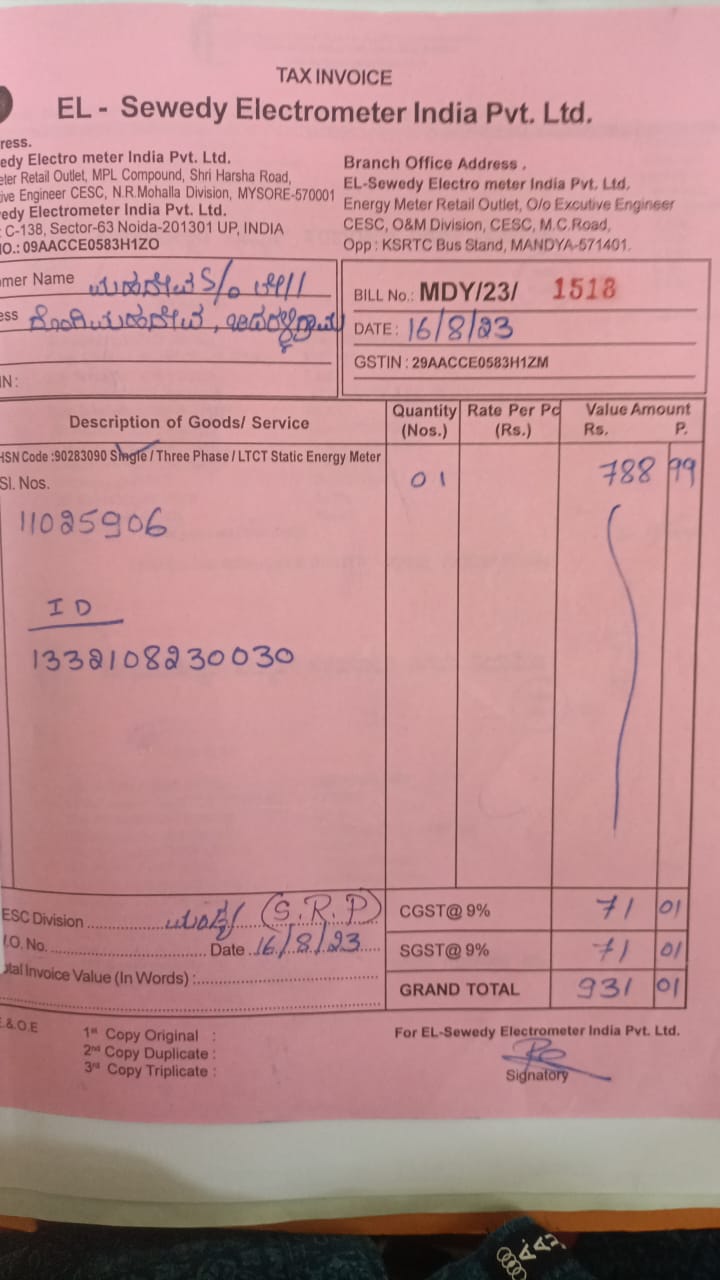 TAX INVOICE
EL - Sewedy Electrometer India Pvt. Ltd.
ress.
edy Electro meter India Pvt. Ltd.
eter Retail Outlet, MPL Compound, Shri Harsha Road,
ive Engineer CESC, N.R.Mohalla Division, MYSORE-570001
edy Electrometer India Pvt. Ltd.
C-138, Sector-63 Noida-201301 UP, INDIA
NO.: 09AACCE0583H1ZO
Branch Office Address .
EL-Sewedy Electro meter India Pvt. Ltd.
Energy Meter Retail Outlet, O/o Excutive Engineer
CESC, O&M Division, CESC, M.C.Road,
Opp : KSRTC Bus Stand, MANDYA-571401.
mer Name S/o
ess
IN :
BILL No.: MDY/23/ 1518
DATE : 16/8/23
GSTIN : 29AACCE0583H1ZM
Description of Goods/ Service Quantity (Nos.) Rate Per Pc (Rs.) Value Amount Rs. P.
HSN Code :90283090 Single / Three Phase / LTCT Static Energy Meter
Sl. Nos. 01 788 99
11025906
ID
1332108230030
ESC Division (S.R.P) CGST@ 9% 71 01
.O. No. Date 16/8/23 SGST@ 9% 71 01
otal Invoice Value (In Words) :
GRAND TOTAL 931 01
E.&.O.E
1st Copy Original :
2nd Copy Duplicate :
3rd Copy Triplicate :
For EL-Sewedy Electrometer India Pvt. Ltd.
Signatory